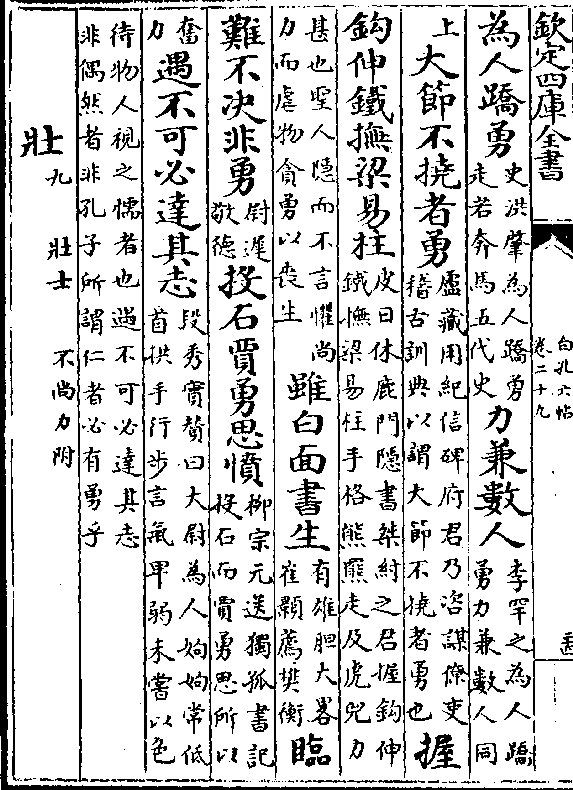 欽定四庫全書
白孔六帖
卷二十九
為人蹻勇史洪肇為人蹻勇走若奔馬五代史力兼數人李罕之為人蹻勇力兼數人同
上大節不撓者勇盧藏用紀信碑府君乃咨謀僚吏稽古訓典以謂大節不撓者勇也握
鈎伸鐵撫梁易柱皮日休鹿門隱書桀紂之君握鈎伸鐵撫梁易柱手格熊羆走及虎兕力
甚也聖人隱而不言懼尚力而虐物貪勇以喪生雖白面書生有雄胆大畧崔顥薦樊衡臨
難不决非勇尉遲敬德投石賈勇思憤柳宗元送獨孤書記投石而賈勇思所以
奮力遇不可必達其志段秀實贊曰大尉為人姁姁常低首拱手行步言氣卑弱未嘗以色
待物人視之懦者也遇不可必達其志非偶然者非孔子所謂仁者必有勇乎
壯九 壯士 不尚力附